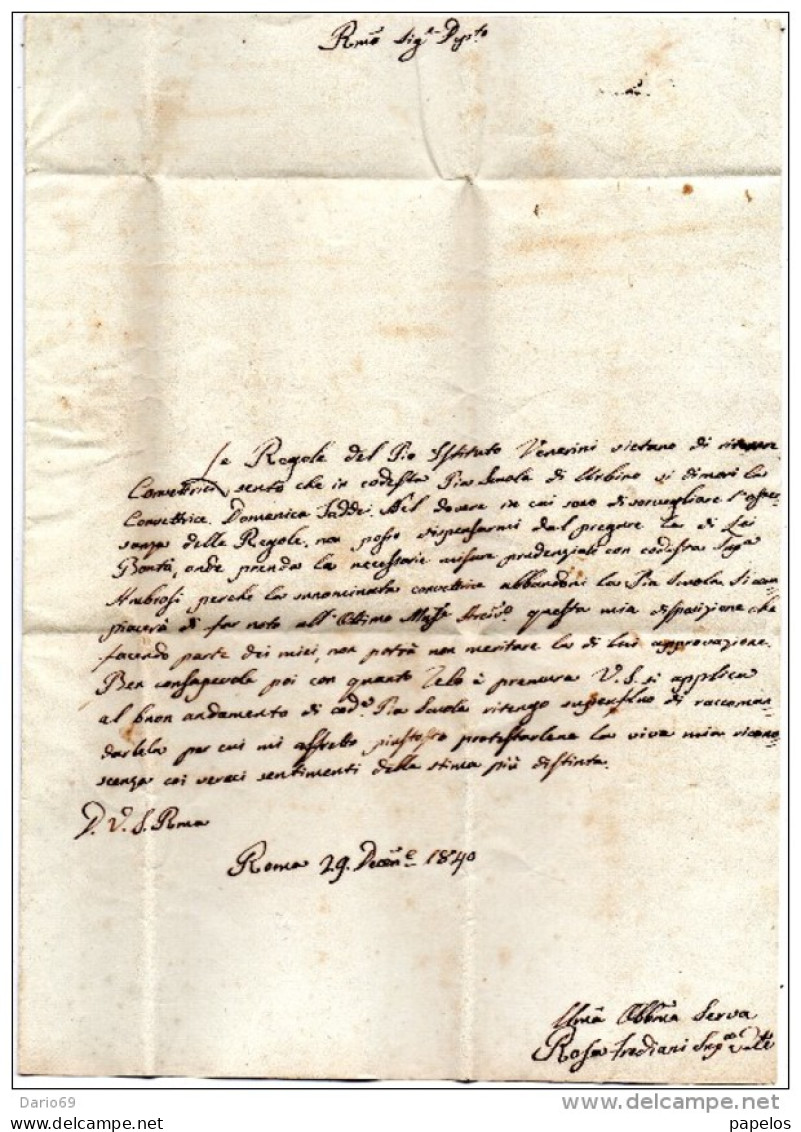 Rmo Sigr Dpto
Le Regole del Pio Istituto Venerini vietano di ritenere
Convettrici, sento che in codesta Pia Scuola di Urbino vi dimori la
Convettrice Domenica Taddei. Nel dovere in cui sono di sorvegliare l'osser-
vanza delle Regole, non posso dispensarmi dal pregare la di Lei
Bontà, onde prenda le necessarie misure prudenziali con codesta Supa
Ambrosi perchè la sunominata convettrice abbandoni la Pia Scuola. Si com-
piacerà di far noto all' Ottimo Monsr Arcivo questa mia disposizione che
facendo parte dei miei, non potrà non meritare la di lui approvazione.
Ben consapevole poi con quanto Zelo e premura V. S. si applica
al buon andamento di coda Pia Scuola ritengo superfluo di raccoman-
darlela per cui mi affretto piuttosto protestarlene la viva mia ricono-
scenza coi veraci sentimenti della stima più distinta.
D. V. S. Rma
Roma 29. Decembe 1840
Uma Obbma Serva
Rosa Frediani Supa
Dario69
delcampe.net
papelos